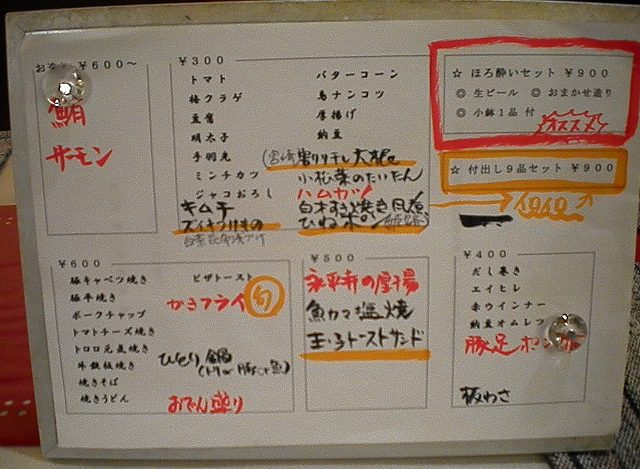 ¥600〜
鮪
サーモン
¥300
トマト
梅クラゲ
豆腐
明太子
手羽先
ミンチカツ
ジャコおろし
キムチ
バターコーン
鳥ナンコツ
厚揚げ
納豆
小松菜のたいたん
ハムカツ
ひねポン
☆ ほろ酔いセット ¥900
◎ 生ビール ◎ おまかせ造り
◎ 小鉢1品 付
オススメ
☆ 付出し9品セット ¥900
¥600
豚キャベツ焼き
豚平焼き
ポークチャップ
トマトチーズ焼き
トロロ元気焼き
牛鉄板焼き
焼きそば
焼きうどん
ピザトースト
かきフライ 旬
ひとり鍋
おでん盛り
¥500
永平寺の厚揚
魚カマ塩焼
玉子トーストサンド
¥400
だし巻き
エイヒレ
赤ウインナー
納豆オムレツ
豚足ポン
板わさ